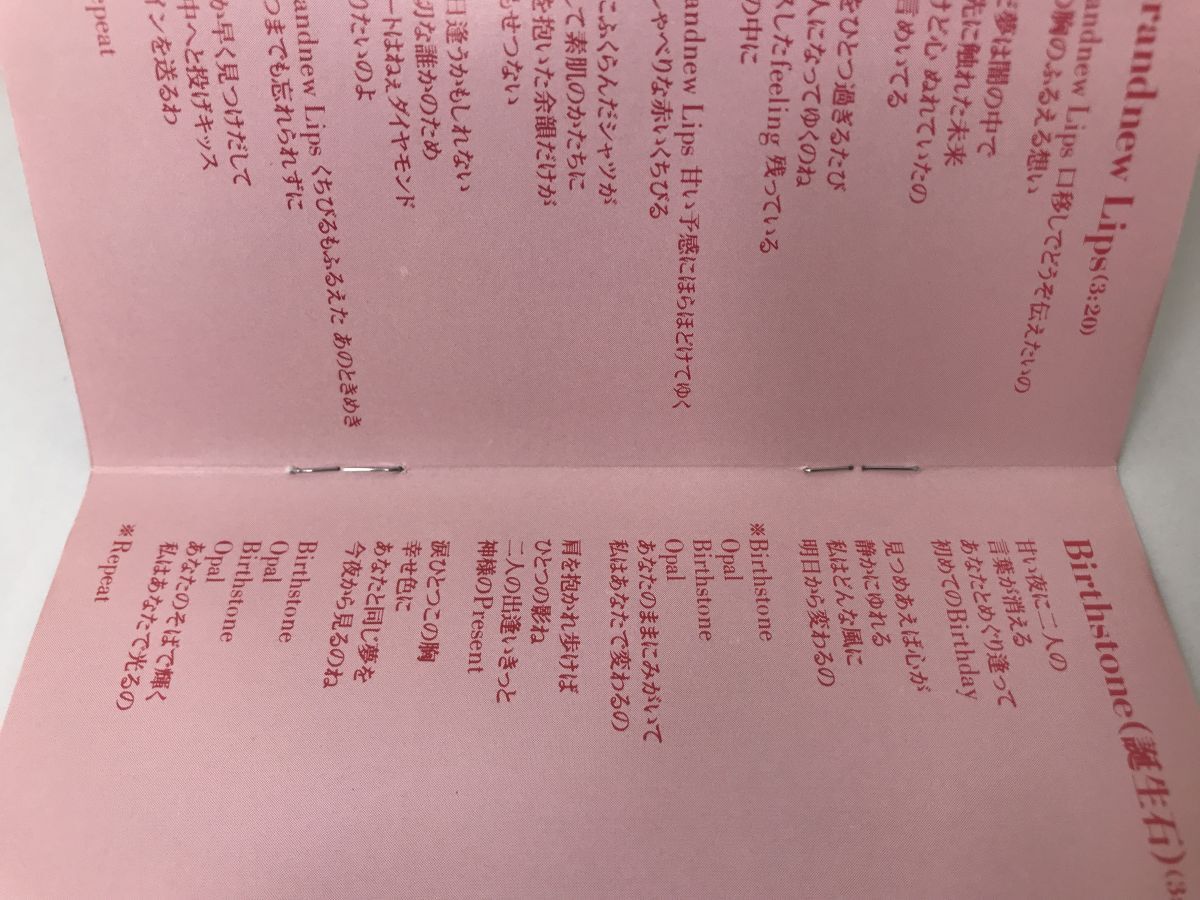 randnew Lips(3:20)
andnew Lips 口移しでどうぞ伝えたいの
の胸のふるえる想い
夢は闇の中で
先に触れた未来
けど心 ぬれていたの
めいてる
をひとつ過ぎるたび
人になってゆくのね
したfeeling 残っている
の中に
andnew Lips 甘い予感にほらほどけてゆく
しゃべりな赤いくちびる
こふくらんだシャツが
して素肌のかたちに
を抱いた余韻だけが
せつない
日逢うかもしれない
切な誰かのため
ートはねぇダイヤモンド
りたいのよ
andnew Lips くちびるもふるえた あのときめき
つまでも忘れられずに
か早く見つけだして
中へと投げキッス
インを送るわ
epeat
Birthstone(誕生石)(3:
甘い夜に二人の
言葉が消える
あなたとめぐり逢って
初めてのBirthday
見つめあえば心が
静かにゆれる
私はどんな風に
明日から変わるの
※Birthstone
Opal
Birthstone
Opal
あなたのままにみがいて
私はあなたで変わるの
肩を抱かれ歩けば
ひとつの影ね
二人の出逢いきっと
神様のPresent
涙ひとつこの胸
幸せ色に
あなたと同じ夢を
今夜から見るのね
Birthstone
Opal
Birthstone
Opal
あなたのそばで輝く
私はあなたで光るの
※Repeat